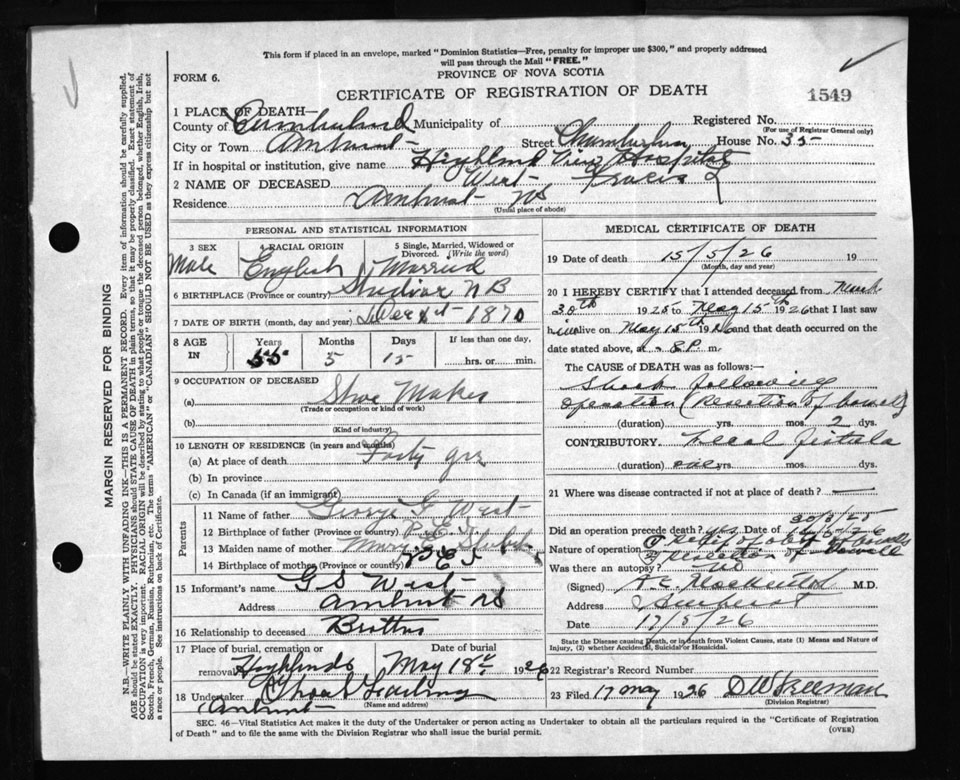 This form if placed in an envelope, marked "Dominion Statistics—Free, penalty for improper use $300," and properly addressed
will pass through the Mail "FREE."
PROVINCE OF NOVA SCOTIA
FORM 6.
CERTIFICATE OF REGISTRATION OF DEATH
1549
MARGIN RESERVED FOR BINDING
N.B.—WRITE PLAINLY WITH UNFADING INK—THIS IS A PERMANENT RECORD. Every item of information should be carefully supplied.
AGE should be stated EXACTLY. PHYSICIANS should STATE CAUSE OF DEATH in plain terms, so that it may be properly classified. Exact statement of
OCCUPATION is very important. RACIAL ORIGIN will be described by stating to what people or tongue the deceased person belonged, whether English, Irish,
Scotch, French, German, Russian, Ruthenian, etc. The terms "AMERICAN" or "CANADIAN" SHOULD NOT BE USED as they express citizenship but not
a race or people. See instructions on back of Certificate.
1 PLACE OF DEATH—
County of Cumberland Municipality of Registered No.
(For use of Registrar General only)
City or Town Amherst Street House No. 35
If in hospital or institution, give name Highland View Hospital
2 NAME OF DECEASED West Francis L
Residence Amherst NS
(Usual place of abode)
PERSONAL AND STATISTICAL INFORMATION
3 SEX 4 RACIAL ORIGIN 5 Single, Married, Widowed or Divorced. (Write the word)
Male English Married
6 BIRTHPLACE (Province or country) Shediac N B
7 DATE OF BIRTH (month, day and year) Dec 1st 1870
8 AGE IN Years Months Days If less than one day,
55 5 15 hrs. or min.
9 OCCUPATION OF DECEASED
(a) Shoe Maker
(Trade or occupation or kind of work)
(b)
(Kind of industry)
10 LENGTH OF RESIDENCE (in years and months)
(a) At place of death Forty yrs
(b) In province
(c) In Canada (if an immigrant)
Parents
11 Name of father George G West
12 Birthplace of father (Province or country) P E I
13 Maiden name of mother
14 Birthplace of mother (Province or country) P E I
15 Informant's name G S West
Address Amherst NS
16 Relationship to deceased Brother
17 Place of burial, cremation or removal Date of burial
Highlands May 18th 1926
18 Undertaker
Amherst (Name and address)
MEDICAL CERTIFICATE OF DEATH
19 Date of death 15/5/26 19
(Month, day and year)
20 I HEREBY CERTIFY that I attended deceased from March
30th 1925 to May 15th 1926 that I last saw
him alive on May 15th 1926 and that death occurred on the
date stated above, at 8 P. m.
The CAUSE OF DEATH was as follows:—
Shock following
operation (Resection of bowel)
(duration) yrs. mos. 2 dys.
CONTRIBUTORY. Fecal fistula
(duration) one yrs. mos. dys.
21 Where was disease contracted if not at place of death?
30/3/25
Did an operation precede death? yes Date of
Nature of operation
Resection of Bowell
Was there an autopsy? No
(Signed) M.D.
Address Amherst
Date 17/5/26
State the Disease causing Death, or in death from Violent Causes, state (1) Means and Nature of
Injury, (2) whether Accidental, Suicidal or Homicidal.
22 Registrar's Record Number
23 Filed 17 May 1926 D W Freeman
(Division Registrar)
SEC. 46—Vital Statistics Act makes it the duty of the Undertaker or person acting as Undertaker to obtain all the particulars required in the "Certificate of Registration
of Death" and to file the same with the Division Registrar who shall issue the burial permit.
(OVER)